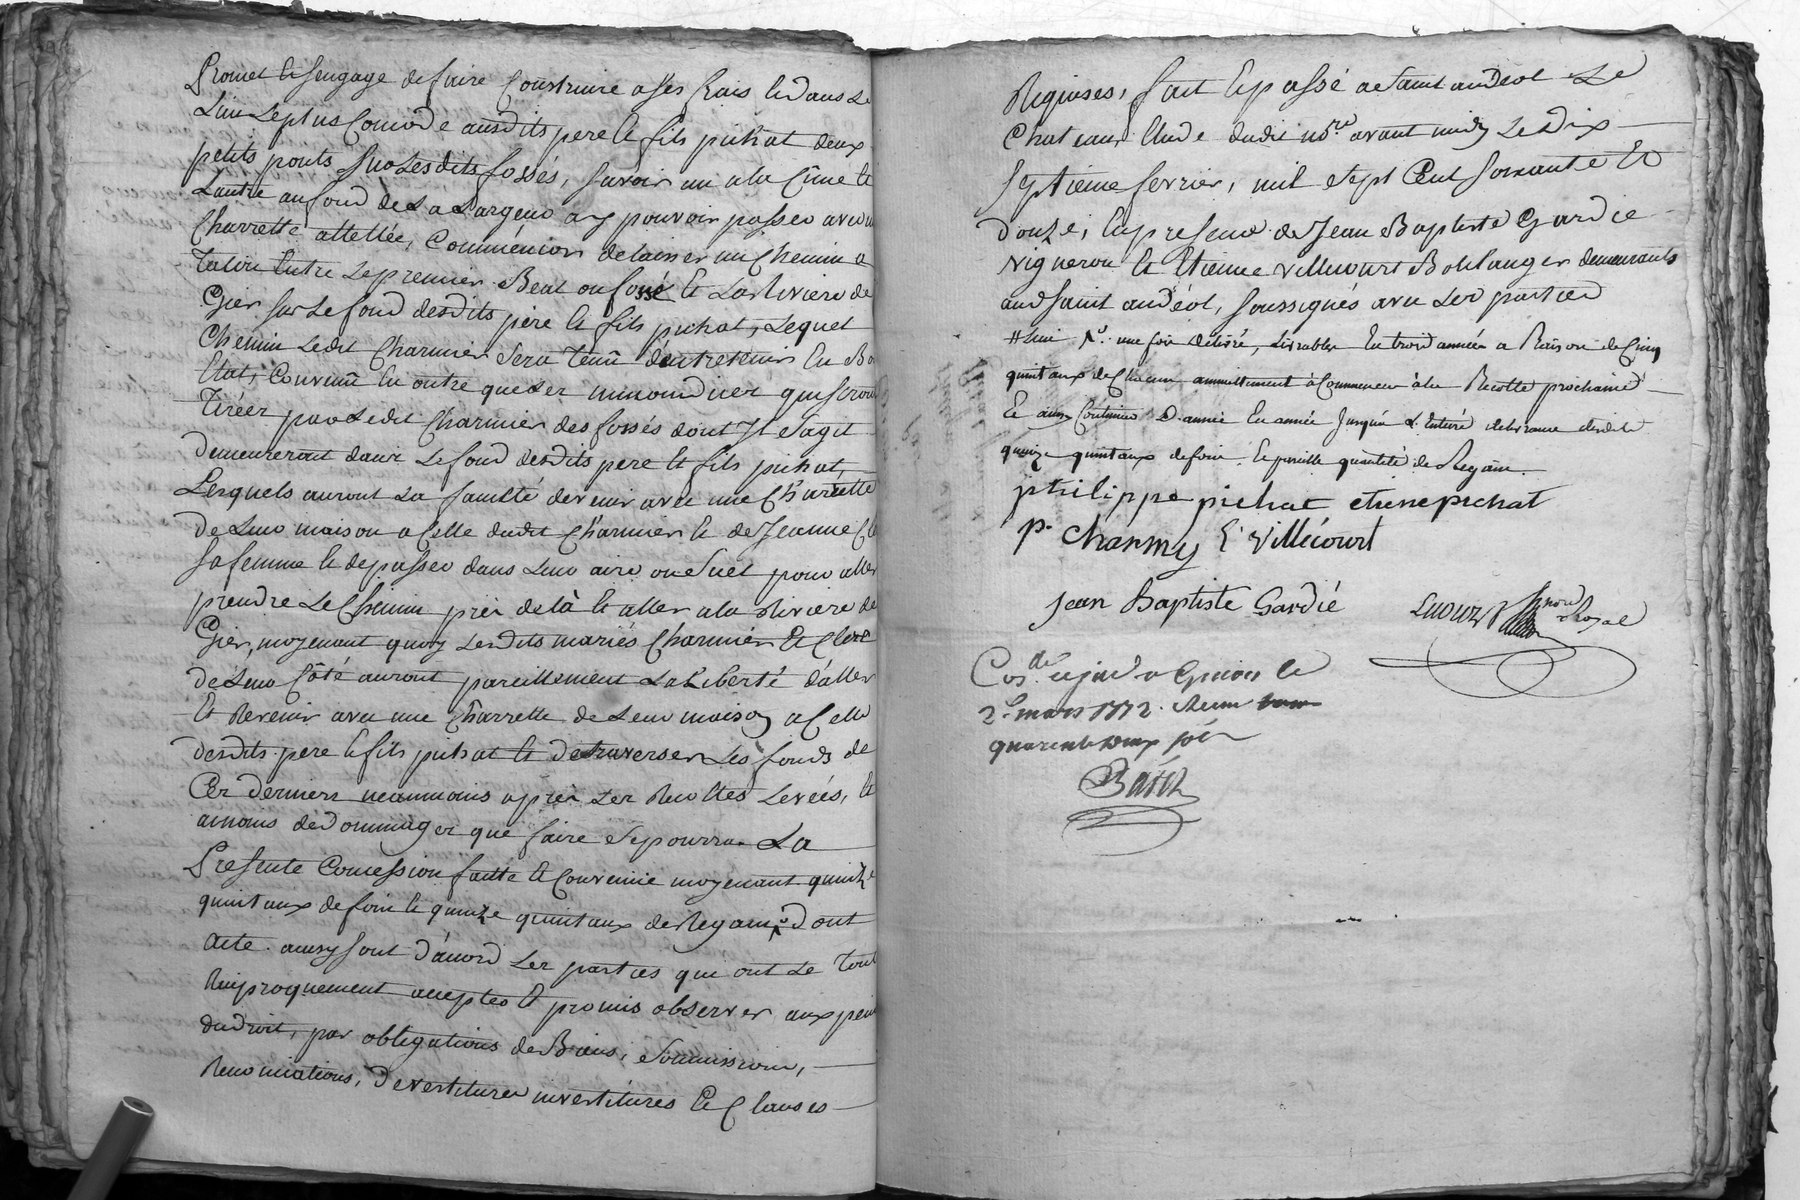 Promet et sengage de faire Construire a ses frais et dans Le
Lieu Le plus Comode ausdits pere et fils pichat deux
petits ponts sur Lesdits fossés, savoir un a la Cime et
Lautre au fond de La Largeur a y pouvoir passer avec une
Charrette attellée, Comme encore de laisser un Chemin a
Talon Entre Le premier Beal ou fossé et La Riviere de
Gier sur Le fond desdits père et fils pichat, Lequel
Chemin Ledit Charmier sera Tenu d'entretenir En Bon
Etat, Convenu En outre que Les immondices qui seront
Tirées par Ledit Charmier des fossés dont Il Sagit
Demeureront dans Le fond desdits pere et fils pichat,
Lesquels auront La faculté de venir avec une Charrette
De Leur maison a Celle dudit Charmier et de Jeanne
sa femme et de passer dans Leur aire ou Suel pour aller
prendre Le Chemin près de là et aller a la Riviere de
Gier, moyenant quoy Lesdits mariés Charmier et Clere
de Leur Côté auront pareillement La Liberté d'aller
et Revenir avec une Charrette de Leur maison a Celle
desdits pere et fils pichat et de traverser Les fonds de
Ces derniers neanmoins après Les Recoltes Levées, et
a moins de Dommages que faire se pourra La
Presente Concession faitte et Convenue moyenant quinze
quintaux de foin et quinze quintaux de Regain, Dont
acte. ainsy sont D'acord Les parties qui ont Le Tout
Reciproquement accepté et promis observer aux peines
du droit, par obligations de Biens, Soumissions,
Renonciations, Devestitures investitures et Clauses
Requises, fait et passé a Saint andéol Le
Chateau Etude dudit no.re avant midy Le Dix
Septieme fevrier, mil Sept Cent Soixante et
Douze, En presence de Jean Baptiste Gardie
vigneron et Etienne villecourt Boulanger demeurants
aud Saint andéol, soussignés avec Les parties
une fois délivré, Livrables En trois années a Raison de Cinq
quintaux de Chacun annuellement à Commencer à la Recolte prochaine
Et ainsy Continuer D'année En année Jusqu'à L'Entiere delivrance desdits
quinze quintaux de foin Et pareille quantité de Regain.
philippe pichat etienepichat
p. Charmy E villecourt
Jean Baptiste Gardié
Royal
Con.de
2. mars 1772. Recu
quarente deux sols